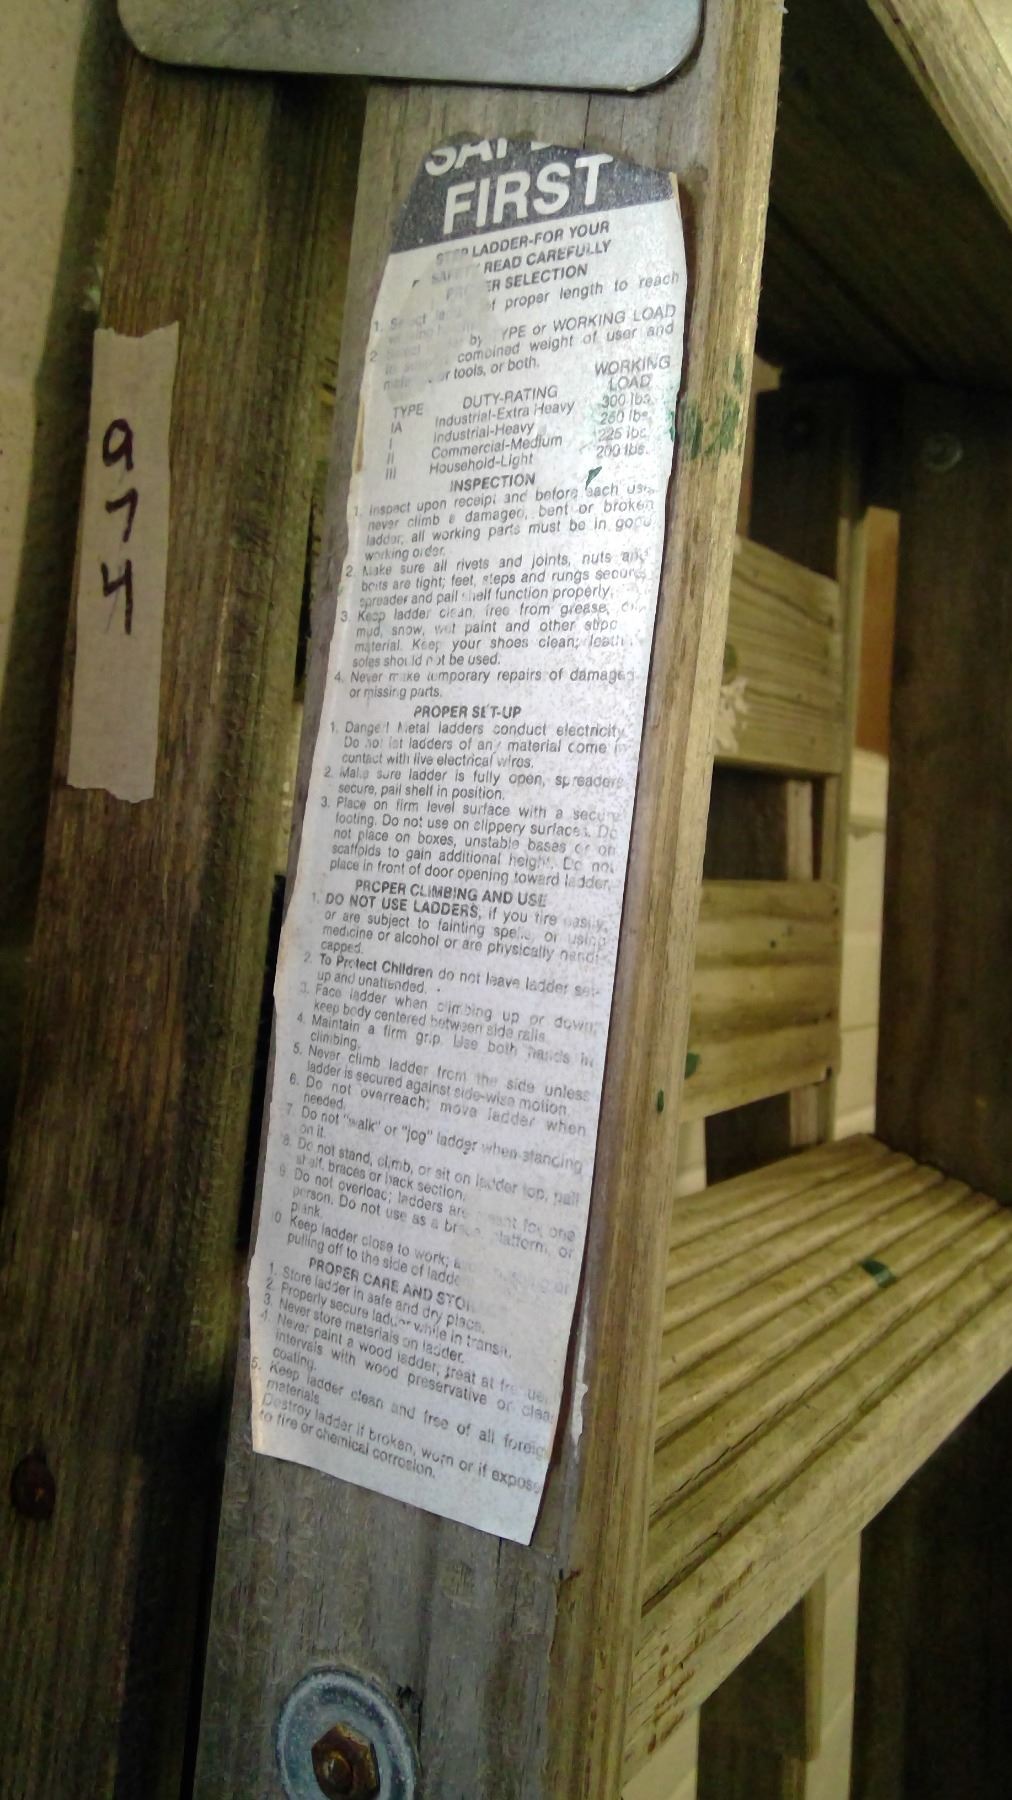 974
FIRST
LADDER-FOR YOUR
READ CAREFULLY
SELECTION
1. of proper length to reach
2 by TYPE or WORKING LOAD
combined weight of user and
tools, or both.
WORKING
LOAD
TYPE DUTY-RATING
IA Industrial-Extra Heavy 300 lbs.
I Industrial-Heavy 250 lbs.
II Commercial-Medium 225 lbs.
III Household-Light 200 lbs.
INSPECTION
1. Inspect upon receipt and before each use,
never climb a damaged, bent or broken
ladder; all working parts must be in good
working order.
2. Make sure all rivets and joints, nuts and
bolts are tight; feet, steps and rungs secure,
spreader and pail shelf function properly.
3. Keep ladder clean, free from grease,
mud, snow, wet paint and other
material. Keep your shoes clean;
soles should not be used.
4. Never make temporary repairs of damaged
or missing parts.
PROPER SET-UP
1. Danger! Metal ladders conduct electricity.
Do not let ladders of any material come
contact with live electrical wires.
2. Make sure ladder is fully open, spreaders
secure, pail shelf in position.
3. Place on firm level surface with a secure
footing. Do not use on slippery surfaces. Do
not place on boxes, unstable bases or on
scaffolds to gain additional height. Do not
place in front of door opening toward ladder.
PROPER CLIMBING AND USE
1. DO NOT USE LADDERS, if you tire easily,
or are subject to fainting spells, or using
medicine or alcohol or are physically handi-
capped.
2. To Protect Children do not leave ladder set-
up and unattended.
3. Face ladder when climbing up or down;
keep body centered between side rails.
4. Maintain a firm grip. Use both hands in
climbing.
5. Never climb ladder from the side unless
ladder is secured against side-wise motion.
6. Do not overreach; move ladder when
needed.
7. Do not "walk" or "jog" ladder when standing
on it.
8. Do not stand, climb, or sit on ladder top, pail
shelf, braces or back section.
9. Do not overload; ladders are meant for one
person. Do not use as a platform, or
plank.
Keep ladder close to work; or
pulling off to the side of ladder
PROPER CARE AND
1. Store ladder in safe and dry place.
2. Properly secure ladder while in transit.
3. Never store materials on ladder.
4. Never paint a wood ladder; treat at
intervals with wood preservative or clear
coating.
5. Keep ladder clean and free of all foreign
materials.
Destroy ladder if broken, worn or if expose
to fire or chemical corrosion.